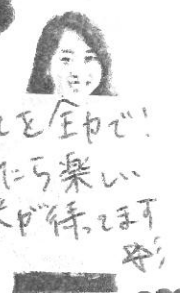 を全力で!
たら楽しい
が待ってます